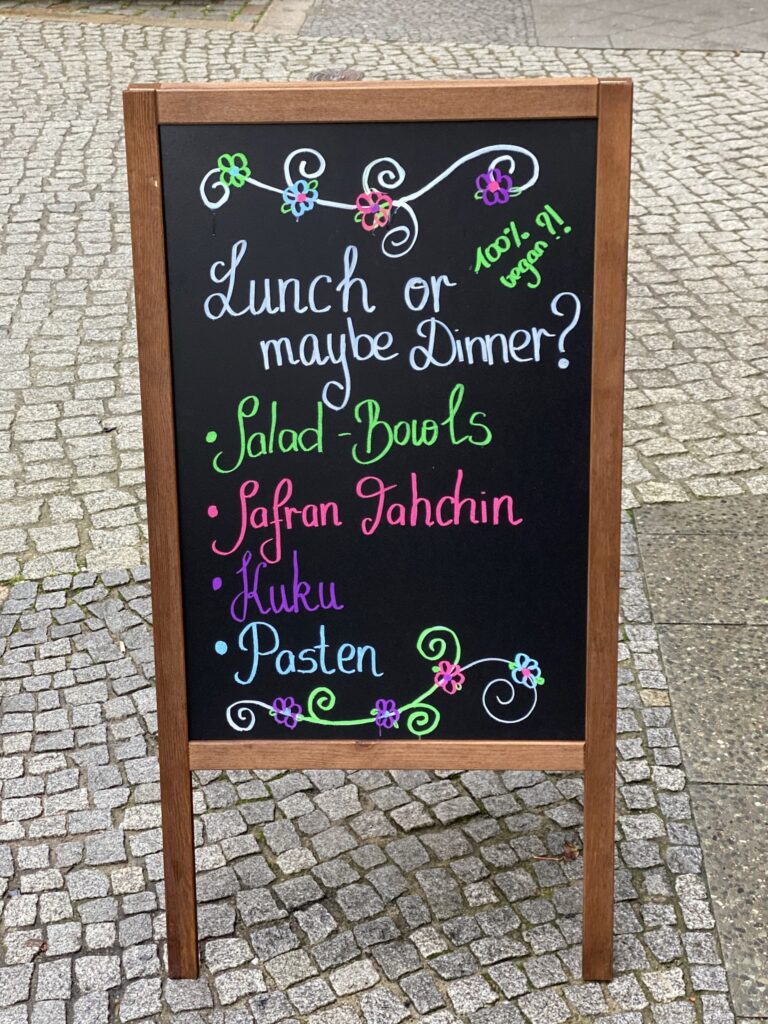 100% ?!
vegan !!
Lunch or
maybe Dinner?
• Salad-Bowls
• Safran Tahchin
• Kuku
• Pasten